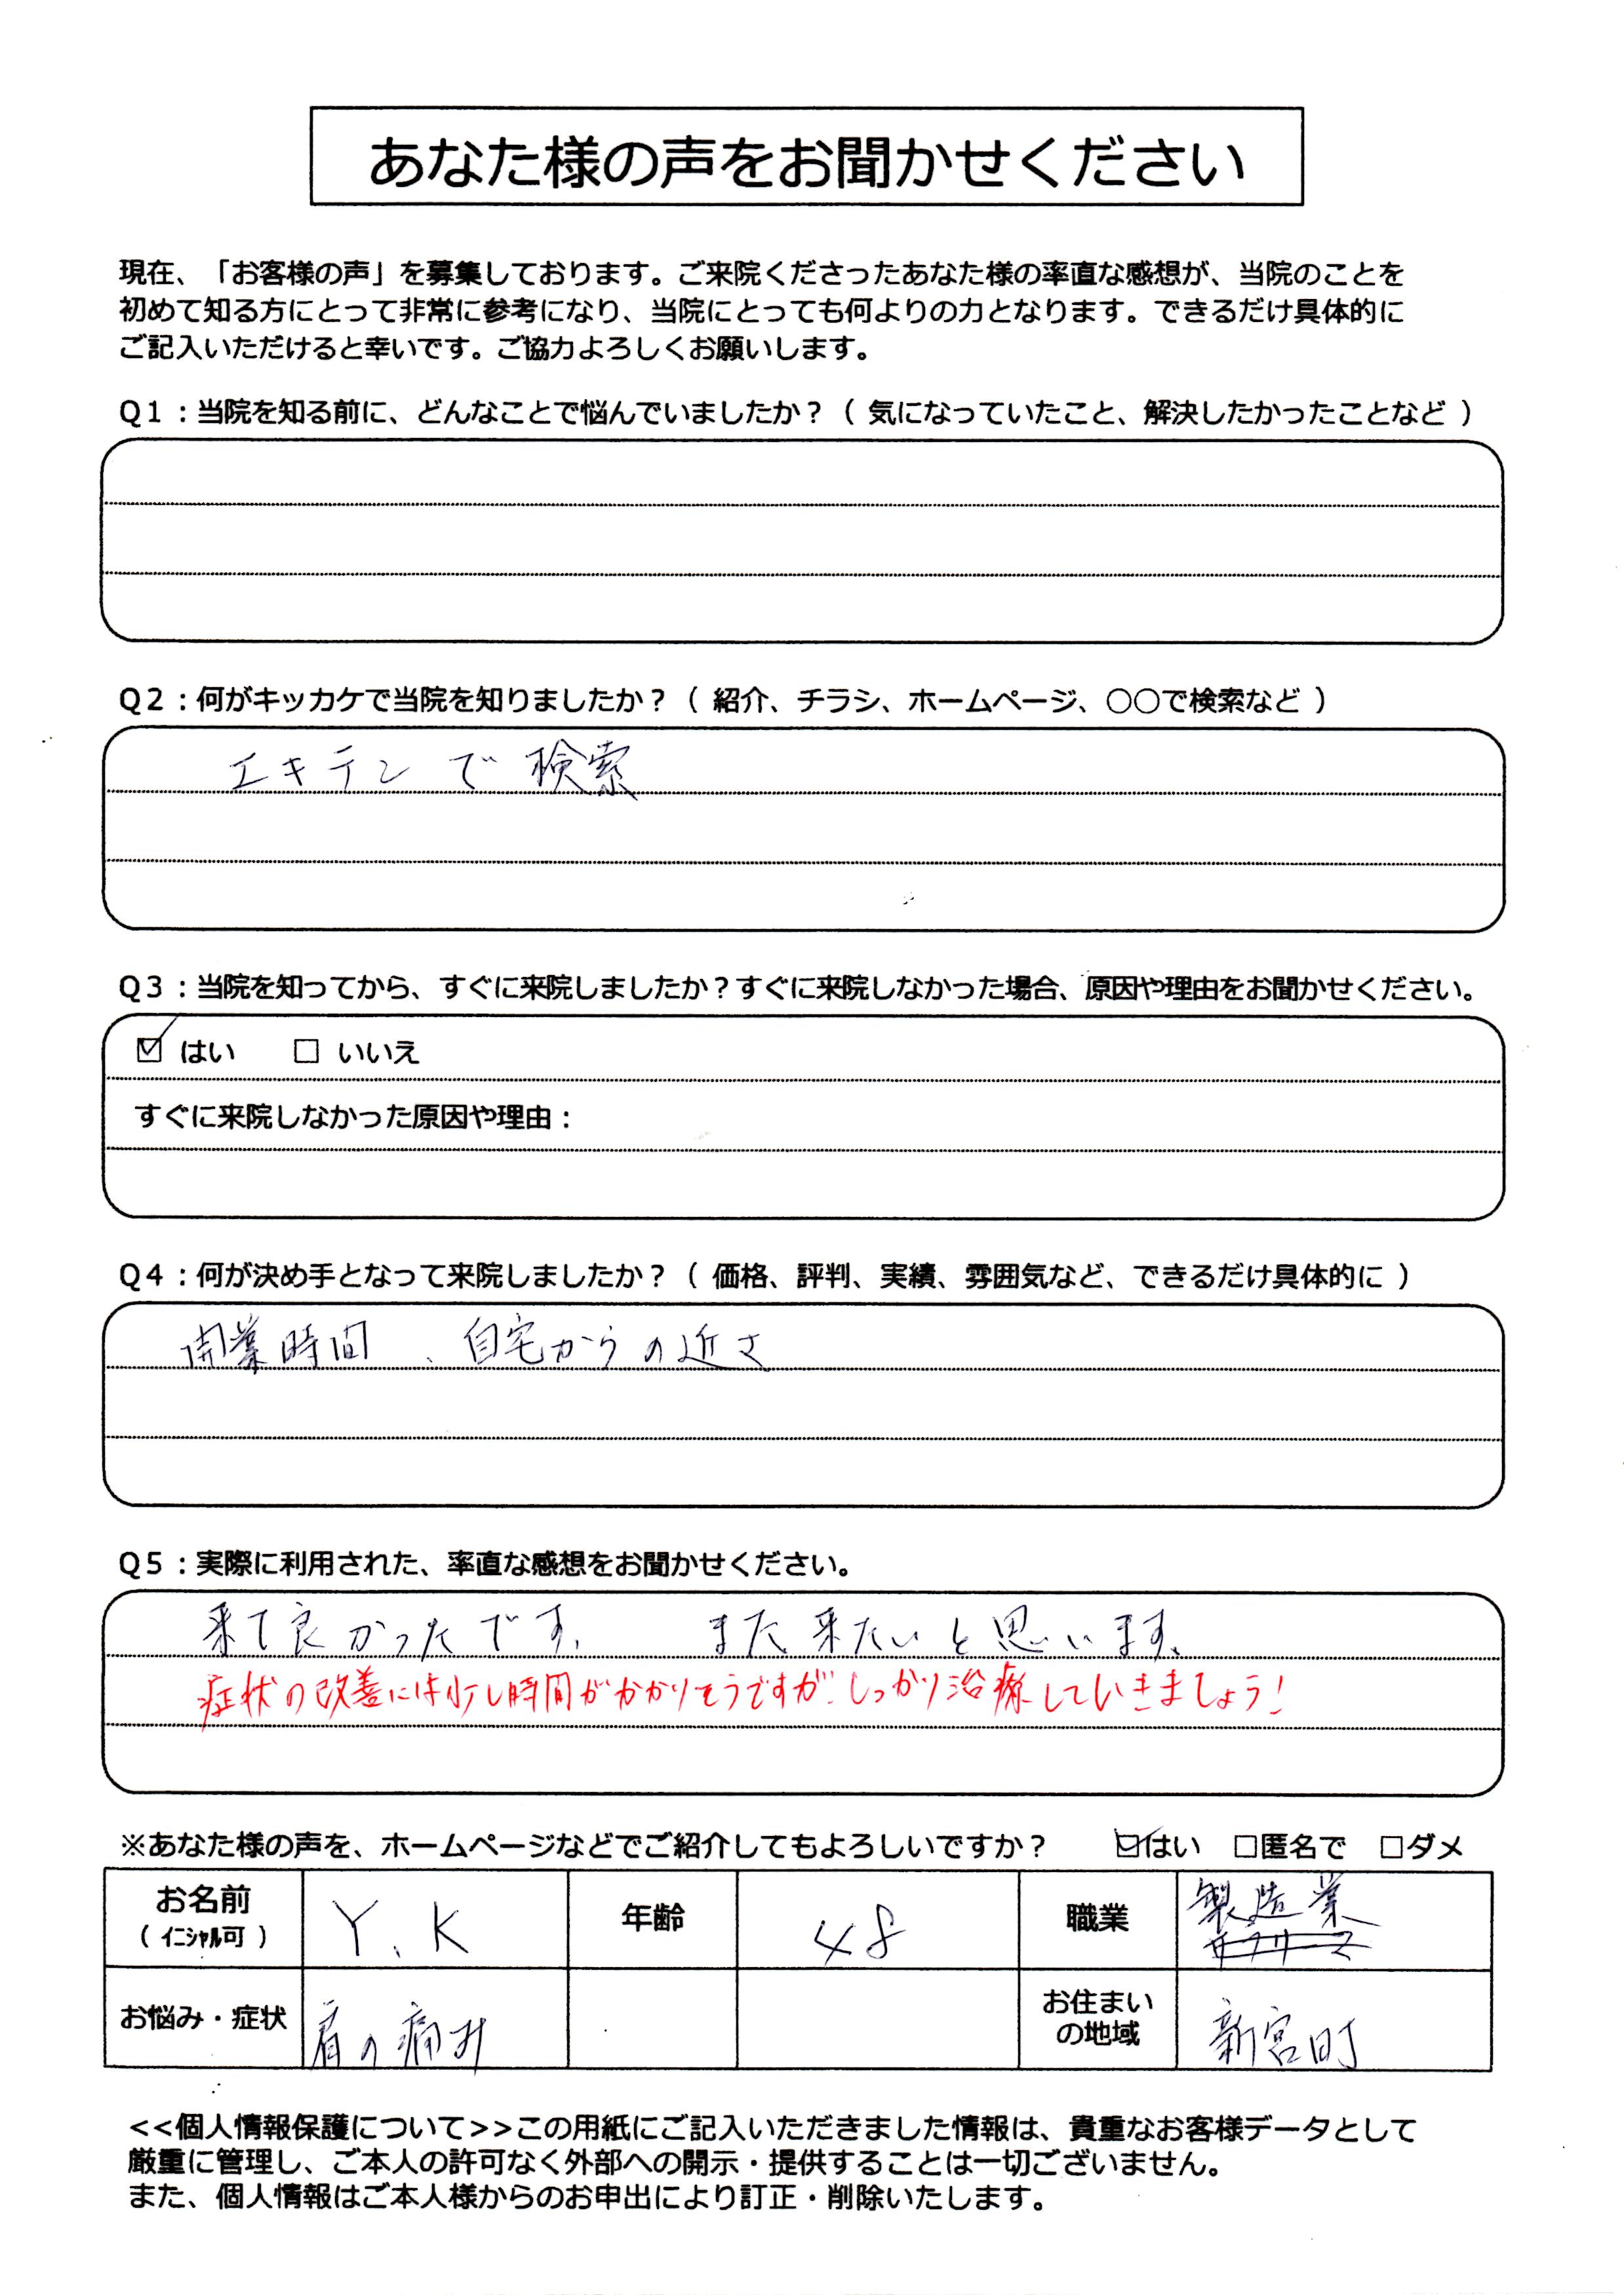 あなた様の声をお聞かせください
現在、「お客様の声」を募集しております。ご来院くださったあなた様の率直な感想が、当院のことを
初めて知る方にとって非常に参考になり、当院にとっても何よりの力となります。できるだけ具体的に
ご記入いただけると幸いです。ご協力よろしくお願いします。
Q1：当院を知る前に、どんなことで悩んでいましたか？（ 気になっていたこと、解決したかったことなど ）
Q2：何がキッカケで当院を知りましたか？（ 紹介、チラシ、ホームページ、○○で検索など ）
エキテンで検索
Q3：当院を知ってから、すぐに来院しましたか？すぐに来院しなかった場合、原因や理由をお聞かせください。
☑ はい □ いいえ
すぐに来院しなかった原因や理由：
Q4：何が決め手となって来院しましたか？（ 価格、評判、実績、雰囲気など、できるだけ具体的に ）
開業時間、自宅からの近さ
Q5：実際に利用された、率直な感想をお聞かせください。
来て良かったです。 また来たいと思います。
症状の改善には少し時間がかかりそうですが、しっかり治療していきましょう！
※あなた様の声を、ホームページなどでご紹介してもよろしいですか？ ☑はい □匿名で □ダメ
お名前 Y.K 年齢 48 職業 製造業
（ イニシャル可 ）
お悩み・症状 肩の痛み お住まい 新宮町
の地域
<<個人情報保護について>>この用紙にご記入いただきました情報は、貴重なお客様データとして
厳重に管理し、ご本人の許可なく外部への開示・提供することは一切ございません。
また、個人情報はご本人様からのお申出により訂正・削除いたします。